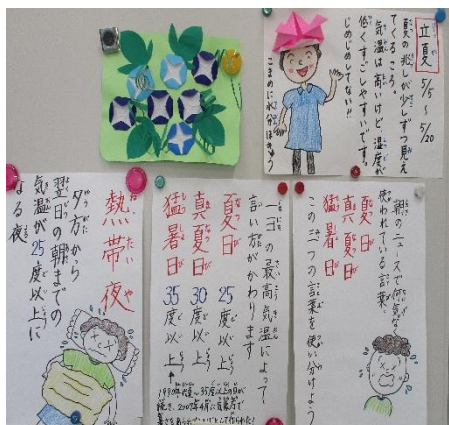 立夏
5/5〜5/20
夏の兆しが少しずつ見え
てくるころ。
気温は高いけど、湿度が
低くすごしやすいです。
じめじめしてない!!
こまめに水分ほきゅう
朝のニュースで何気なく
使われている言葉
夏日
真夏日
猛暑日
この三つの言葉を使い分けよう
一日の最高気温によって
言い方がかわります
夏日 25度以上
真夏日 30度以上
猛暑日 35度以上
熱帯夜
夕方から
翌日の朝までの
気温が25度以上に
なる夜